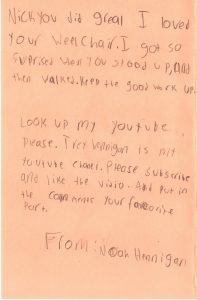 Nick you did great I loved
your weelchair. I got so
suprised when you stood up, and
then walked. Keep the good work up.
Look up my youtube
please. Trey hennigan is my
youtube chanel. Please subscribe
and like the vidio. And put in
the comments your favorite
Part.
From: Noah Hennigan